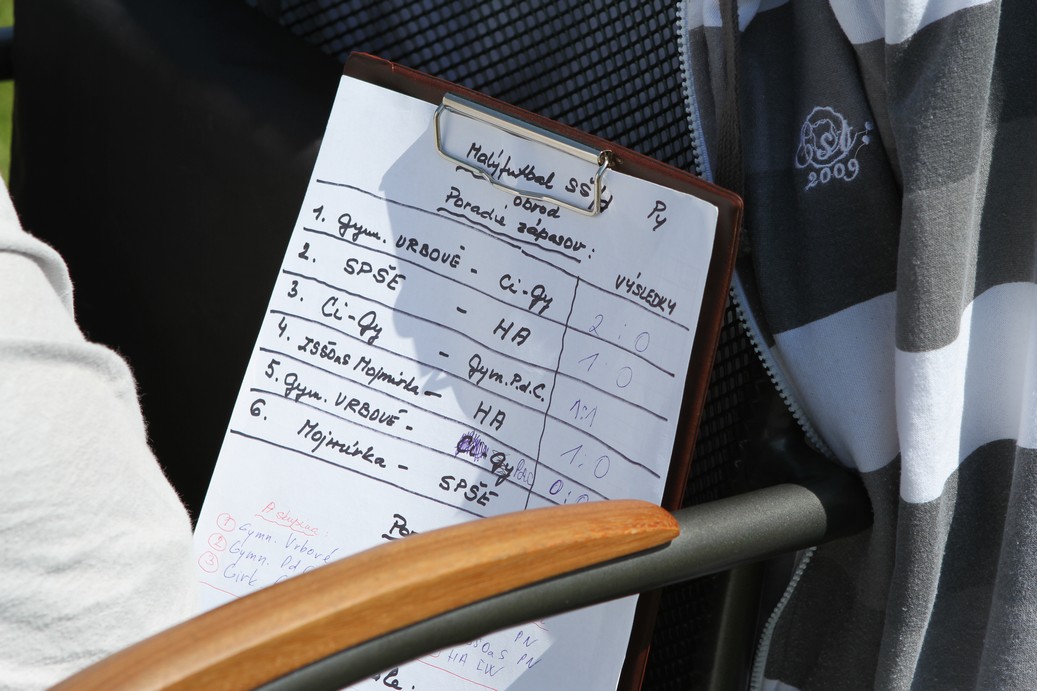 Malý futbal SŠ
Py
obvod
Poradie zápasov:
VÝSLEDKY
1. Gym. VRBOVÉ - Ci-Gy 2:0
2. SPŠE - HA 1:0
3. Ci-Gy - Gym. P.d.C. 1:1
4. ISŠOaS Mojmírka - HA 1:0
5. Gym. VRBOVÉ - Gy PdC 0:0
6. Mojmírka - SPŠE
A skupina:
1 Gymn. Vrbové
2 Gymn. PdC
3 Cirk.
PN
PN
HA
2009